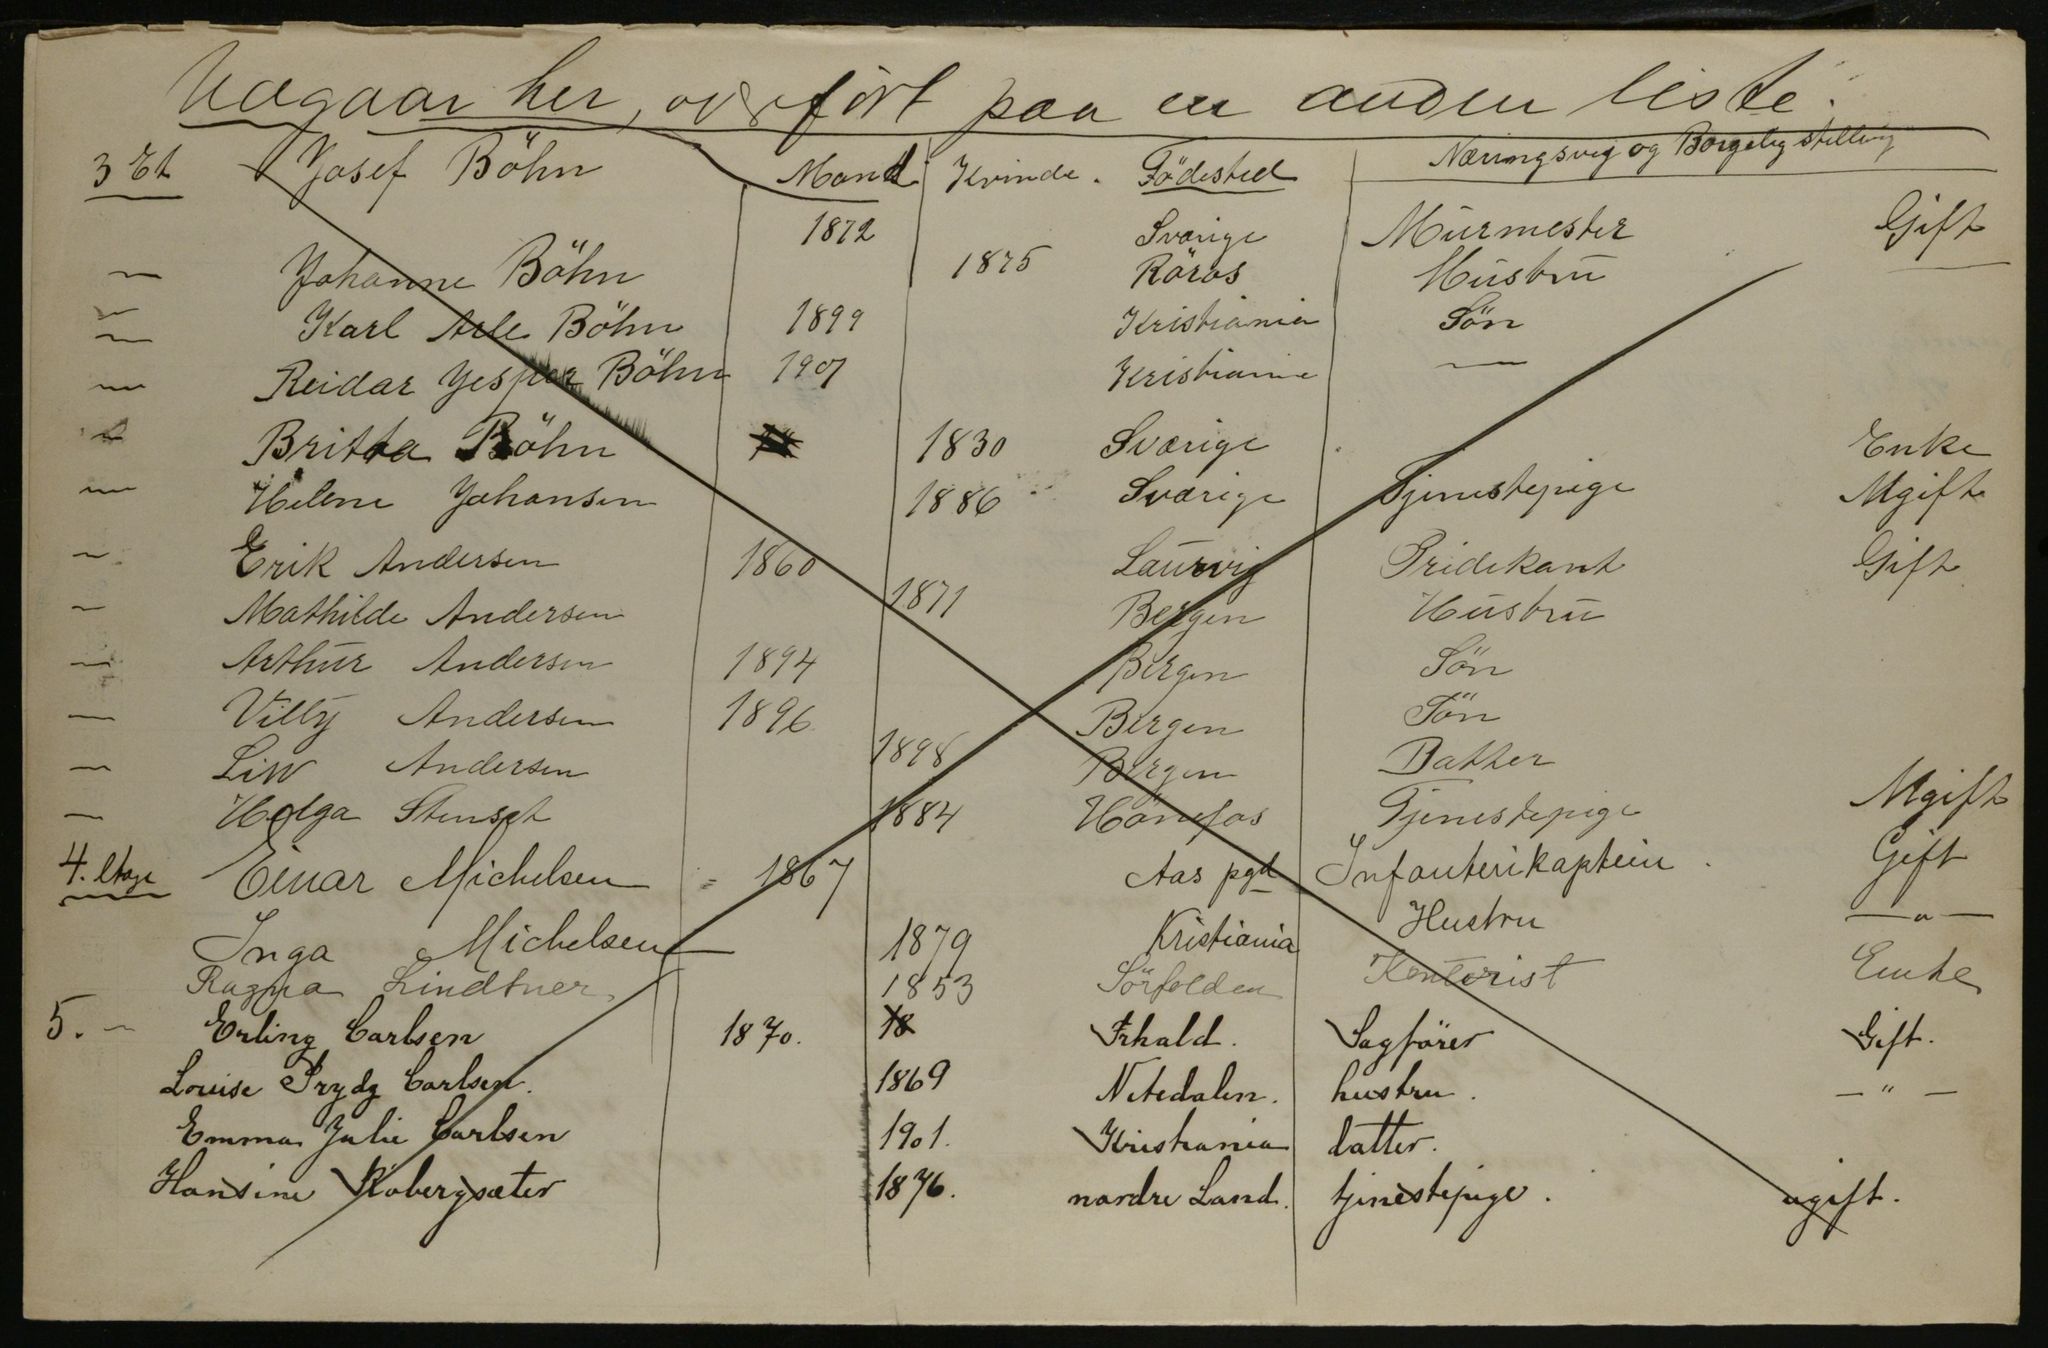 Udgaar her, overført paa en anden liste.
3 Et Josef Böhn Mand Kvinde. Födested Næringsveg og Borgelig stilling
1872 Sværige Murmester Gift
— Johanne Böhn 1875 Röros Hustru
— Karl Arle Böhn 1899 Kristiania Sön
— Reidar Jesper Böhn 1907 Kristiania —
— Britta Böhn 1830 Sværige Enke
— Helene Johansen 1886 Sværige Tjenestepige Ugift
— Erik Andersen 1860 Laurvig Prædikant Gift
— Mathilde Andersen 1871 Bergen Hustru
— Arthur Andersen 1894 Bergen Sön
— Villy Andersen 1896 Bergen Sön
— Liw Andersen 1898 Bergen Datter
— Helga Stenset 1884 Hönefos Tjenestepige Ugift
4. Etage Einar Michelsen 1867 Aas pgd Infanterikaptein. Gift
Inga Michelsen 1879 Kristiania Hustru — " —
Ragna Lindtner 1853 Sörfolden Kontorist Enke
5. — Erling Carlsen 1870. 18 Frhald. Sagförer Gift.
Louise Prydz Carlsen. 1869 Nitedalen. hustru. — " —
Emma Julie Carlsen 1901. Kristiania datter.
Hansine Robergsæter 1876. nordre Land. tjenestepige. ugift.